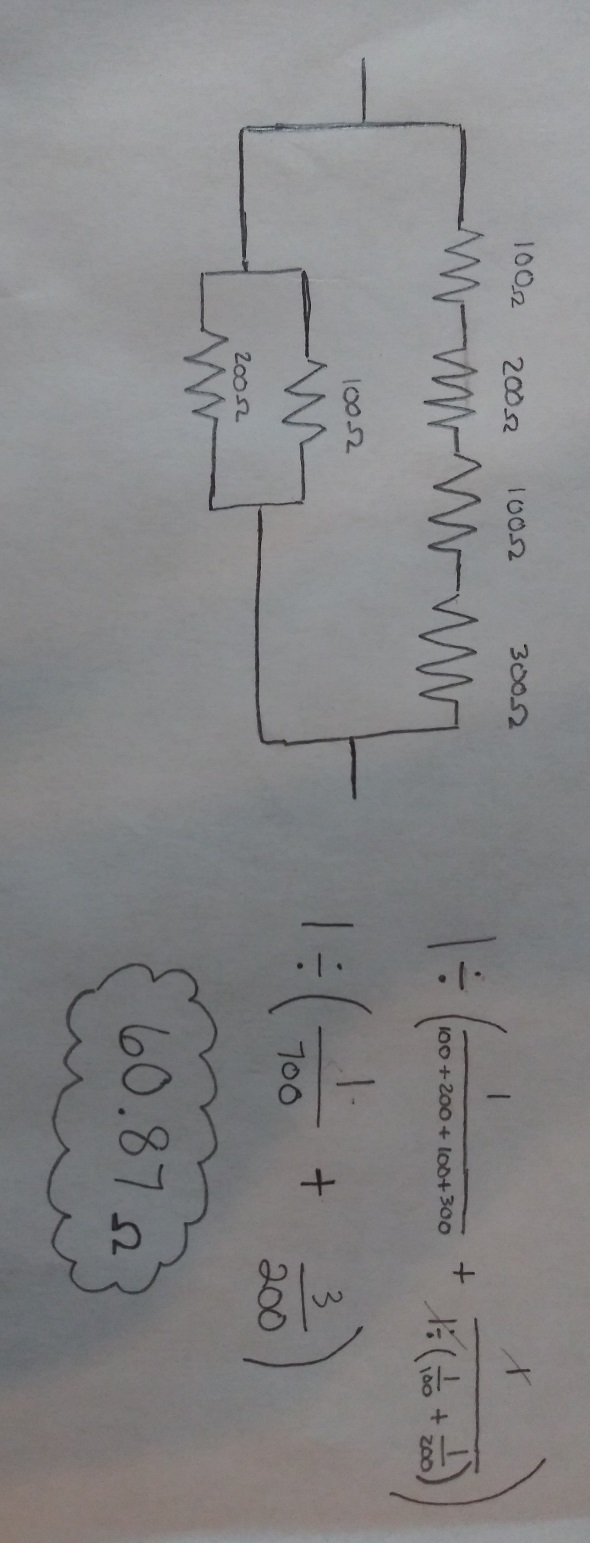 100Ω 200Ω 100Ω 300Ω
100Ω
200Ω
1÷(1/(100+200+100+300) + 1/(1÷(1/100 + 1/200)))
1÷(1/700 + 3/200)
60.87 Ω